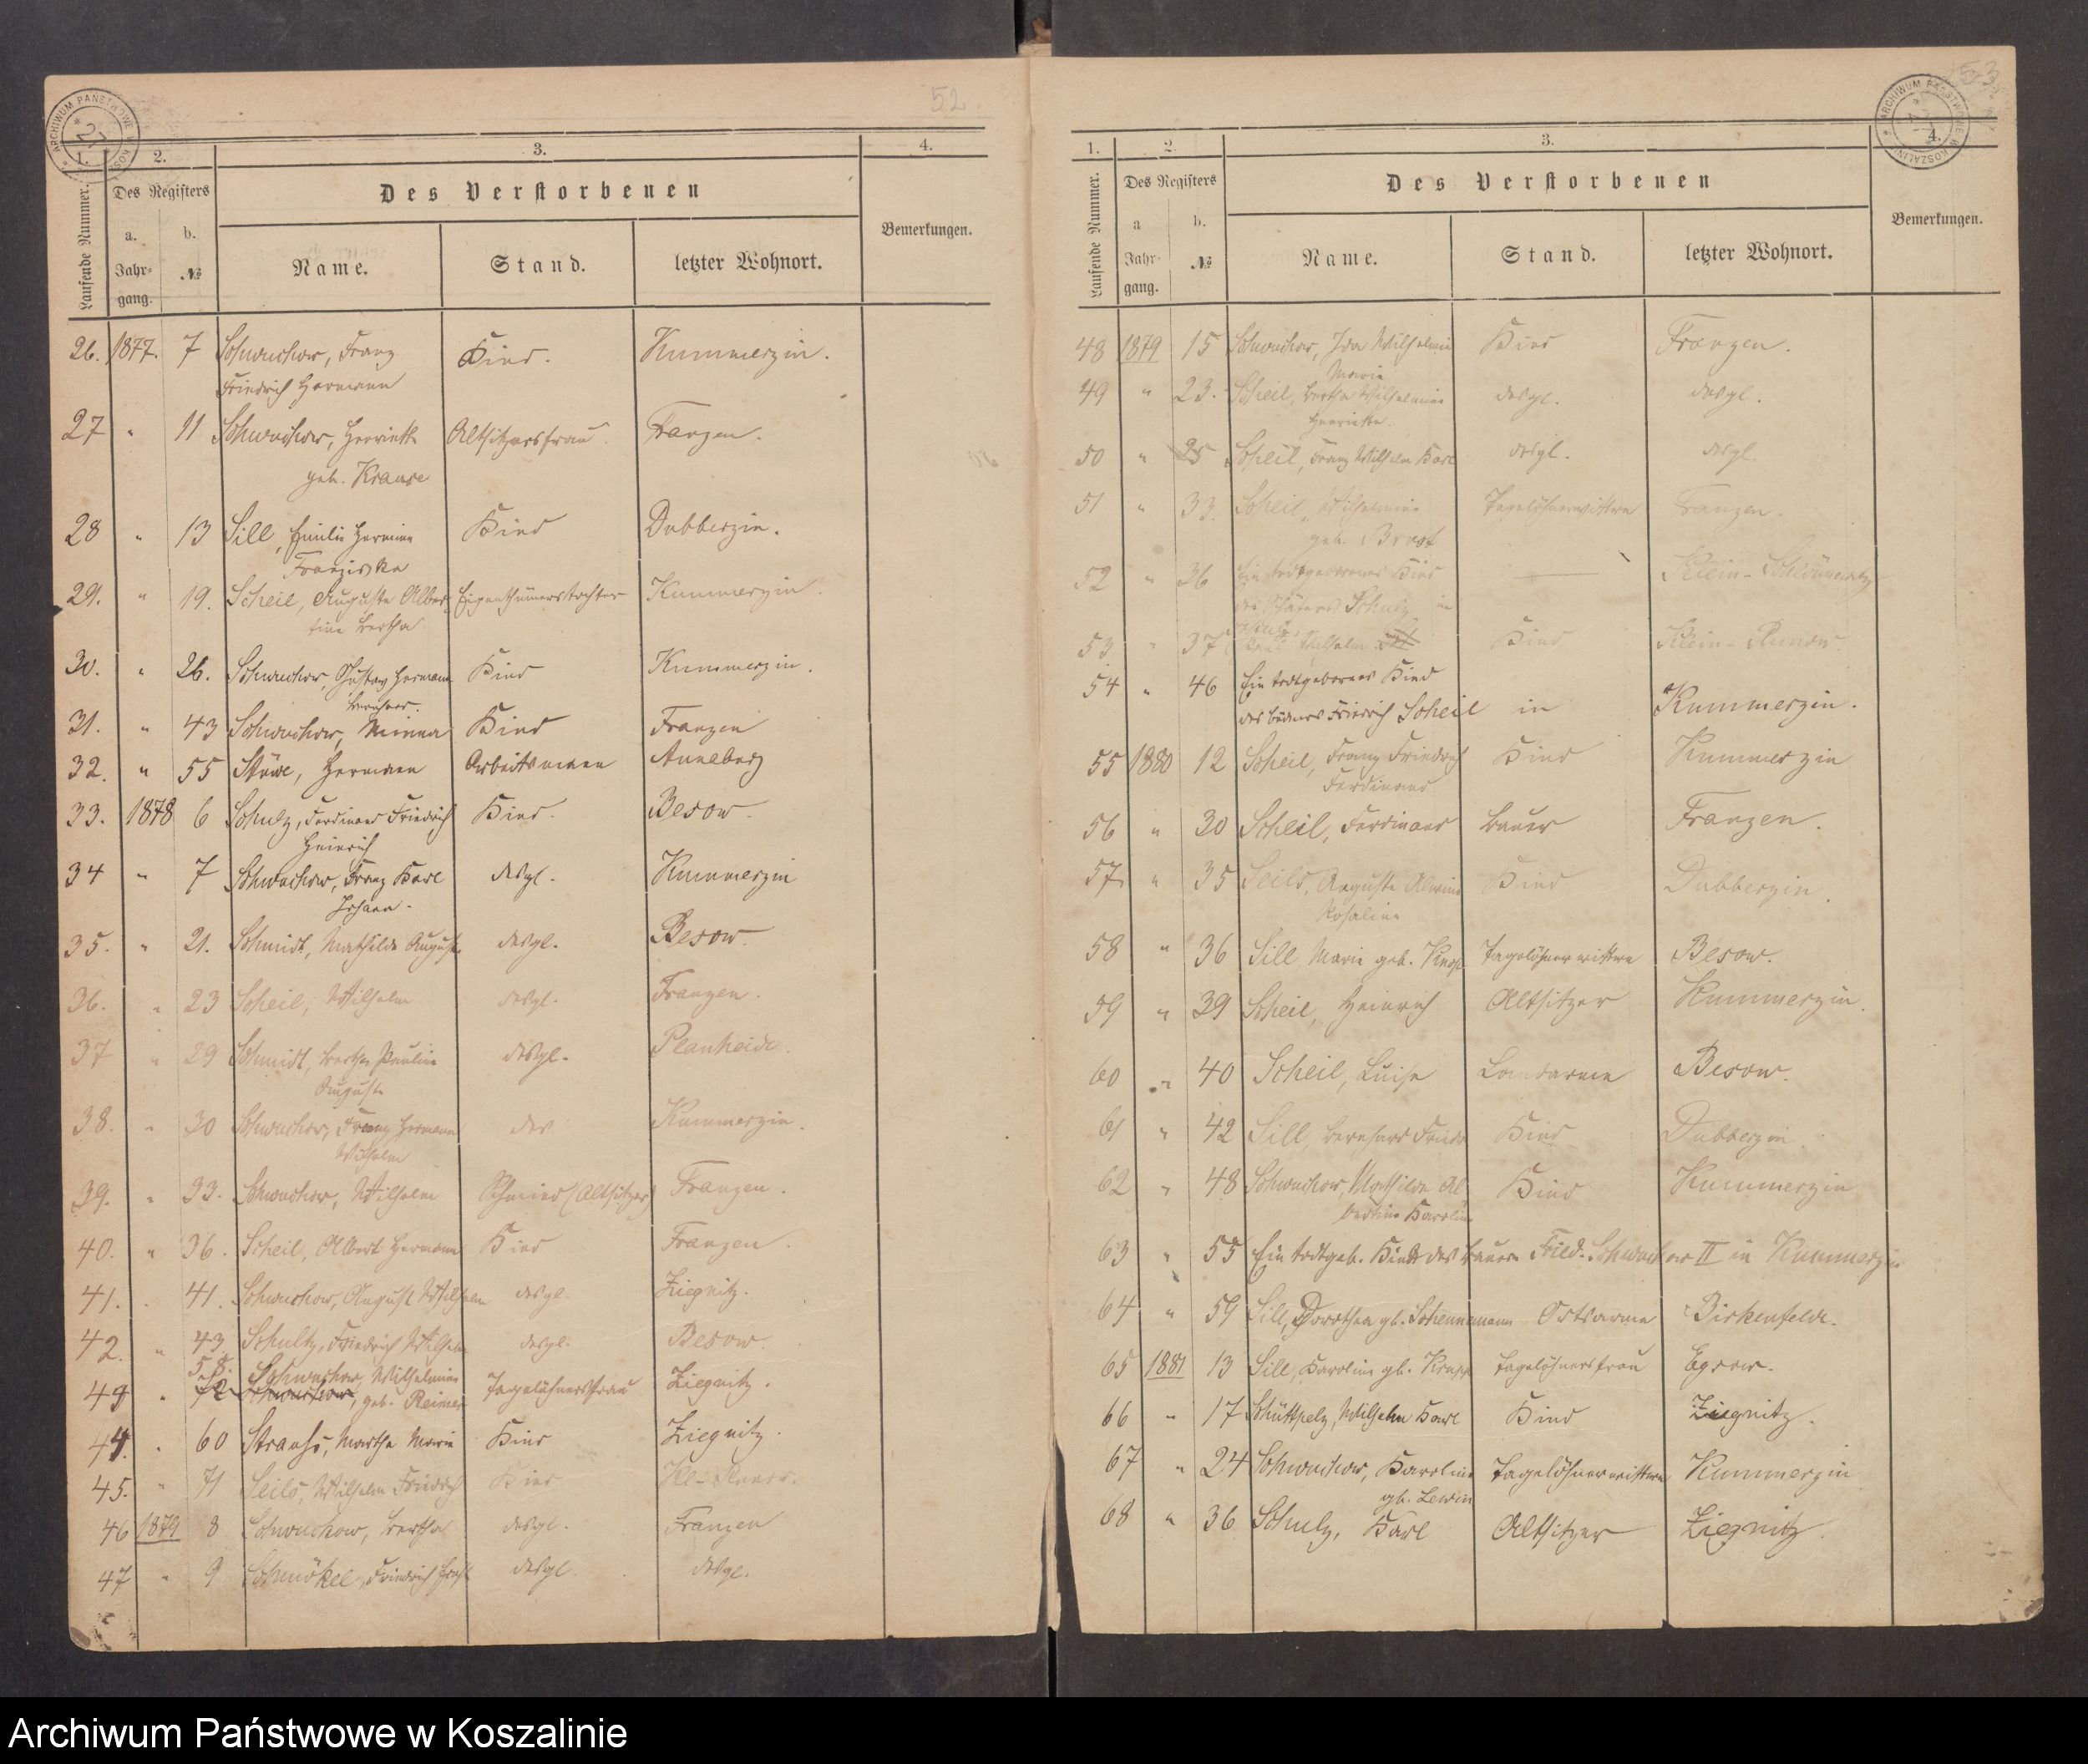 52
1. 2. 3. 4.
Laufende Nummer. Des Registers Des Verstorbenen Bemerkungen.
a. Jahrgang. b. № Name. Stand. letzter Wohnort.
26. 1877. 7 Schwuchow, Franz Kind. Kummerzin.
Friedrich Hermann
27 " 11 Schwuchow, Henriette Altsitzersfrau. Franzen.
geb. Krause
28 " 13 Sill, Emilie Hermine Kind Dubberzin.
Franziska
29. " 19. Scheil, Auguste Alber- Eigenthümerstochter Kummerzin.
tine Bertha
30. " 26. Schwuchow, Gustav Hermann Kind Kummerzin.
Bernhard.
31. " 43 Schwuchow, Minna Kind Franzen
32. " 55 Stüwe, Hermann Arbeitsmann Annaberg
33. 1878 6 Schulz, Ferdinand Friedrich Kind. Besow.
Heinrich
34 " 7 Schwuchow, Franz Karl desgl. Kummerzin
Johann.
35. " 21. Schmidt, Mathilde Auguste desgl. Besow.
36. " 23 Scheil, Wilhelm desgl. Franzen.
37 " 29 Schmidt, Bertha Pauline desgl. Planheide.
Auguste
38. " 30 Schwuchow, Franz Hermann Kummerzin.
Wilhelm
39. " 33. Schwuchow, Wilhelm Schmied (Altsitzer) Franzen.
40. " 36. Scheil, Albert Hermann Kind Franzen.
41. " 41. Schwuchow, August Wilhelm desgl. Ziegnitz.
42. " 43. Schultz, Friedrich Wilhelm desgl. Besow.
58. Schwuchow, Wilhelmine
43 " geb. Reimer Tagelöhnersfrau Ziegnitz.
44. " 60 Strauhs, Martha Marie Kind Ziegnitz.
45. " 71 Seils, Wilhelm Friedrich Kind Kl.-Runow.
46 1879 8 Schwuchow, Bertha desgl. Franzen
47 " 9 Schmökel, Friedrich Ernst desgl. desgl.
53
1. 2. 3. 4.
Laufende Nummer. Des Registers Des Verstorbenen Bemerkungen.
a Jahrgang. b. № Name. Stand. letzter Wohnort.
48 1879 15 Schwuchow, Ida Wilhelmine Kind Franzen.
Marie
49 " 23. Scheil, Bertha Wilhelmine desgl. desgl.
Henriette.
50 " 25 Scheil, Franz Wilhelm Karl desgl. desgl.
51 " 33. Scheil, Wilhelmine Tagelöhnerwittwe Franzen.
geb. Brost
52 " 36 Ein todtgeborenes Kind — Klein-Schwönwitz
des Schäfers Schulz in
53 " 37 Wilhelm Kind Klein-Runow.
54 " 46 Ein todtgeborenes Kind
des Büdners Friedrich Scheil in Kummerzin.
55 1880 12 Scheil, Franz Friedrich Kind Kummerzin
Ferdinand
56 " 30 Scheil, Ferdinand Bauer Franzen.
57 " 35 Seils, Auguste Alwine Kind Dubberzin.
Rosaline
58 " 36 Sill Marie geb. Tagelöhnerwittwe Besow.
59 " 39 Scheil, Heinrich Altsitzer Kummerzin.
60 " 40 Scheil, Luise Landarme Besow.
61 " 42 Sill, Bernhard Friedr Kind Dubberzin.
62 " 48 Schwuchow, Mathilde Al Kind Kummerzin
bertine Karoline
63 " 55 Ein todtgeb. Kind des Bauern Fried. Schwuchow II in Kummerzin
64 " 59 Sill, Dorothea gb. Schennemann Ortsarme Birkenfelde.
65 1881 13 Sill, Karoline gb. Tagelöhnersfrau Egsow.
66 " 17 Schüttpelz, Wilhelm Karl Kind Ziegnitz.
67 " 24 Schwuchow, Karoline Tagelöhnerwittwe Kummerzin
gb. Lewin
68 " 36 Schulz, Karl Altsitzer Ziegnitz.
Archiwum Państwowe w Koszalinie